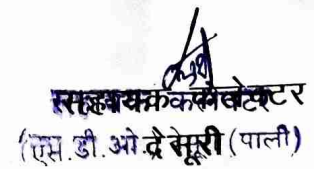 सहायक कलेक्टर
(एस.डी.ओ.देसूरी (पाली)